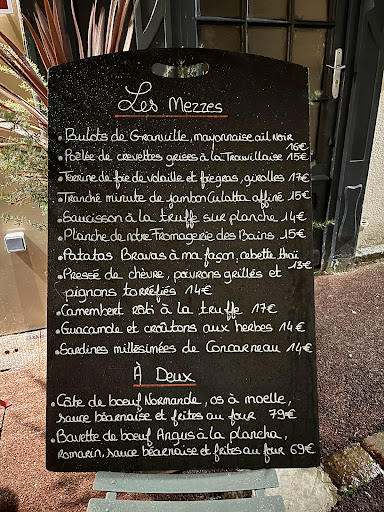 Les Mezzes
• Bulots de Granville, mayonnaise ail noir
16€
• Poêlée de crevettes grises à la Trouvillaise 15€
• Terrine de foie de volaille et foie gras, girolles 17€
• Tranché minute de jambon Culatta affiné 15€
• Saucisson à la truffe sur planche 14€
• Planche de notre Fromagerie des Bains 15€
• Patatas Bravas à ma façon, cebette thaï
13€
• Pressé de chèvre, poivrons grillés et
pignons torréfiés 14€
• Camembert rôti à la truffe 17€
• Guacamole et croûtons aux herbes 14€
• Sardines millésimées de Concarneau 14€
À Deux
• Côte de boeuf Normande, os à moelle,
sauce béarnaise et frites au four 79€
• Bavette de boeuf Angus à la plancha,
romarin, sauce béarnaise et frites au four 69€